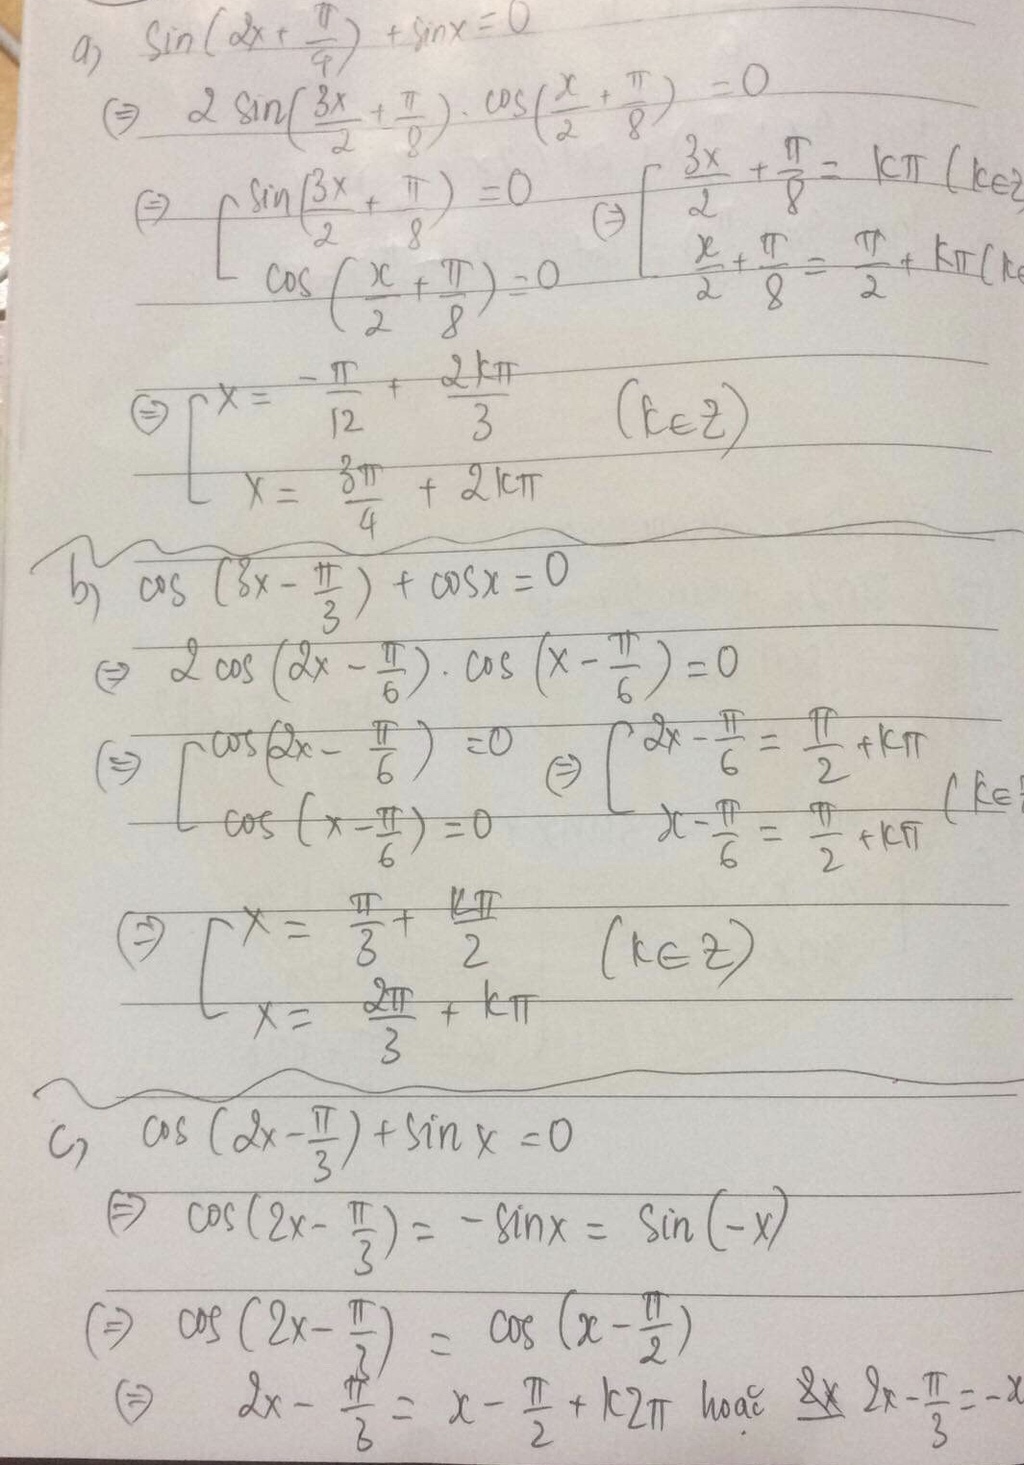 a) sin(2x + π/4) + sinx = 0
⇔ 2 sin(3x/2 + π/8) . cos(x/2 + π/8) = 0
⇔ [ sin(3x/2 + π/8) = 0 ⇔ [ 3x/2 + π/8 = kπ (k∈Z
cos(x/2 + π/8) = 0 x/2 + π/8 = π/2 + kπ (k∈
⇔ [ x = -π/12 + 2kπ/3 (k∈Z)
x = 3π/4 + 2kπ
b) cos(3x - π/3) + cosx = 0
⇔ 2 cos(2x - π/6) . cos(x - π/6) = 0
⇔ [ cos(2x - π/6) = 0 ⇔ [ 2x - π/6 = π/2 + kπ (k∈Z
cos(x - π/6) = 0 x - π/6 = π/2 + kπ
⇔ [ x = π/3 + kπ/2 (k∈Z)
x = 2π/3 + kπ
c) cos(2x - π/3) + sin x = 0
⇔ cos(2x - π/3) = -sinx = sin(-x)
⇔ cos(2x - π/3) = cos(x - π/2)
⇔ 2x - π/3 = x - π/2 + k2π hoặc 2x - π/3 = -x